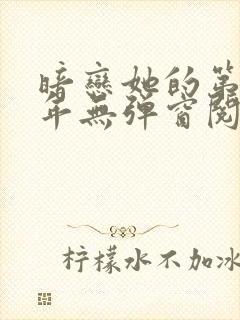 暗戀她的第
年無彈窗閱
柠檬水不加冰